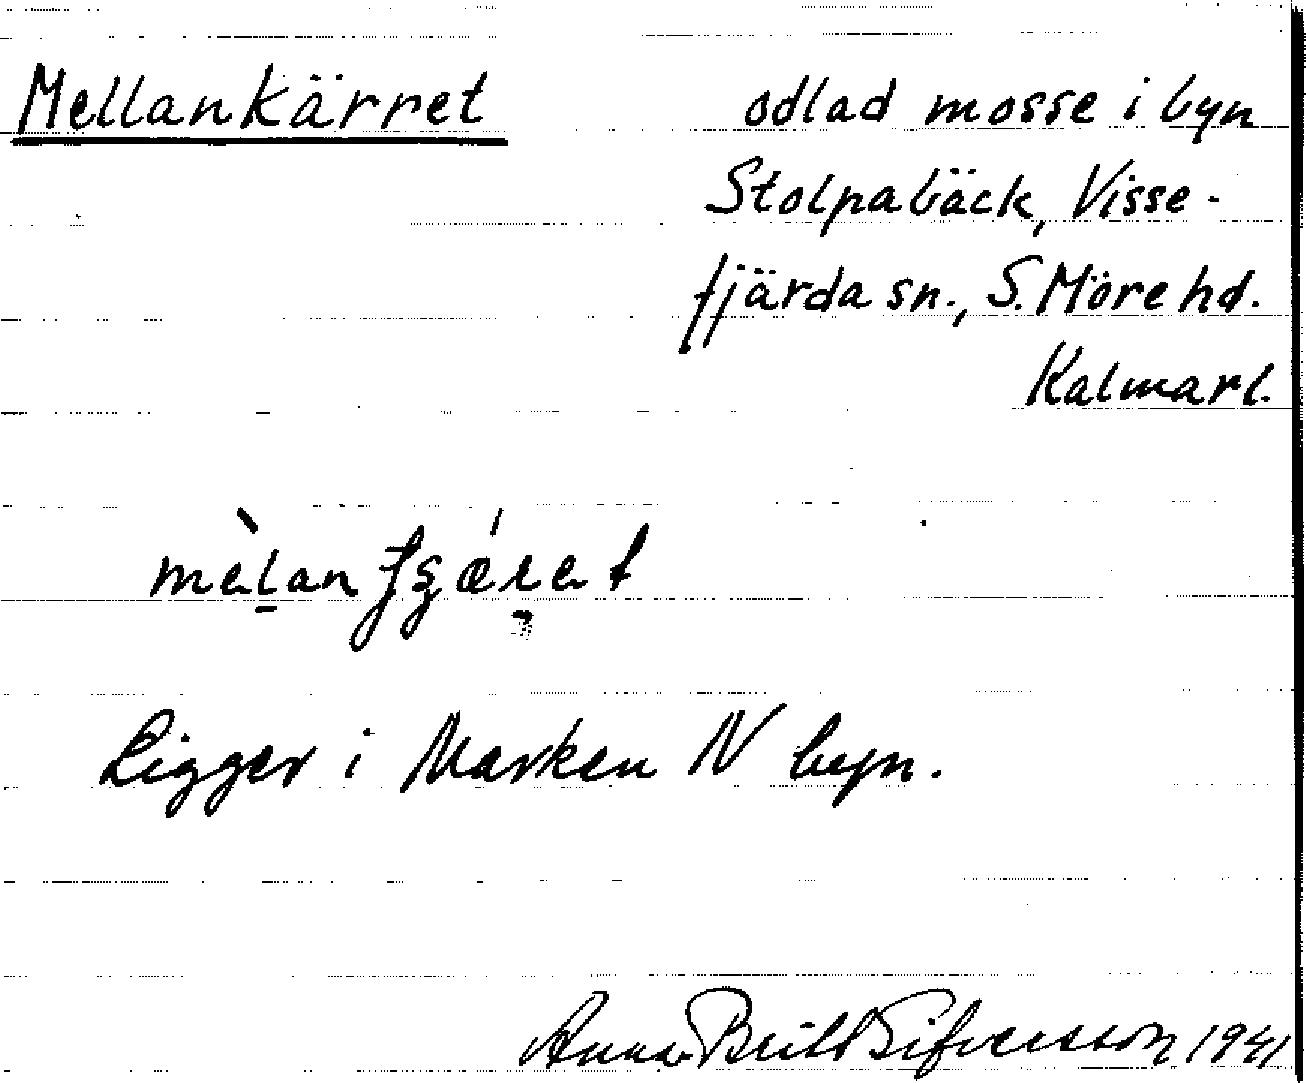 Mellankärret
odlad mosse i byn
Stolpabäck, Visse-
fjärda sn., S. Möre hd.
Kalmar l.
Ligger i Marken N byn.
Anna-Britt Sifversson 1941